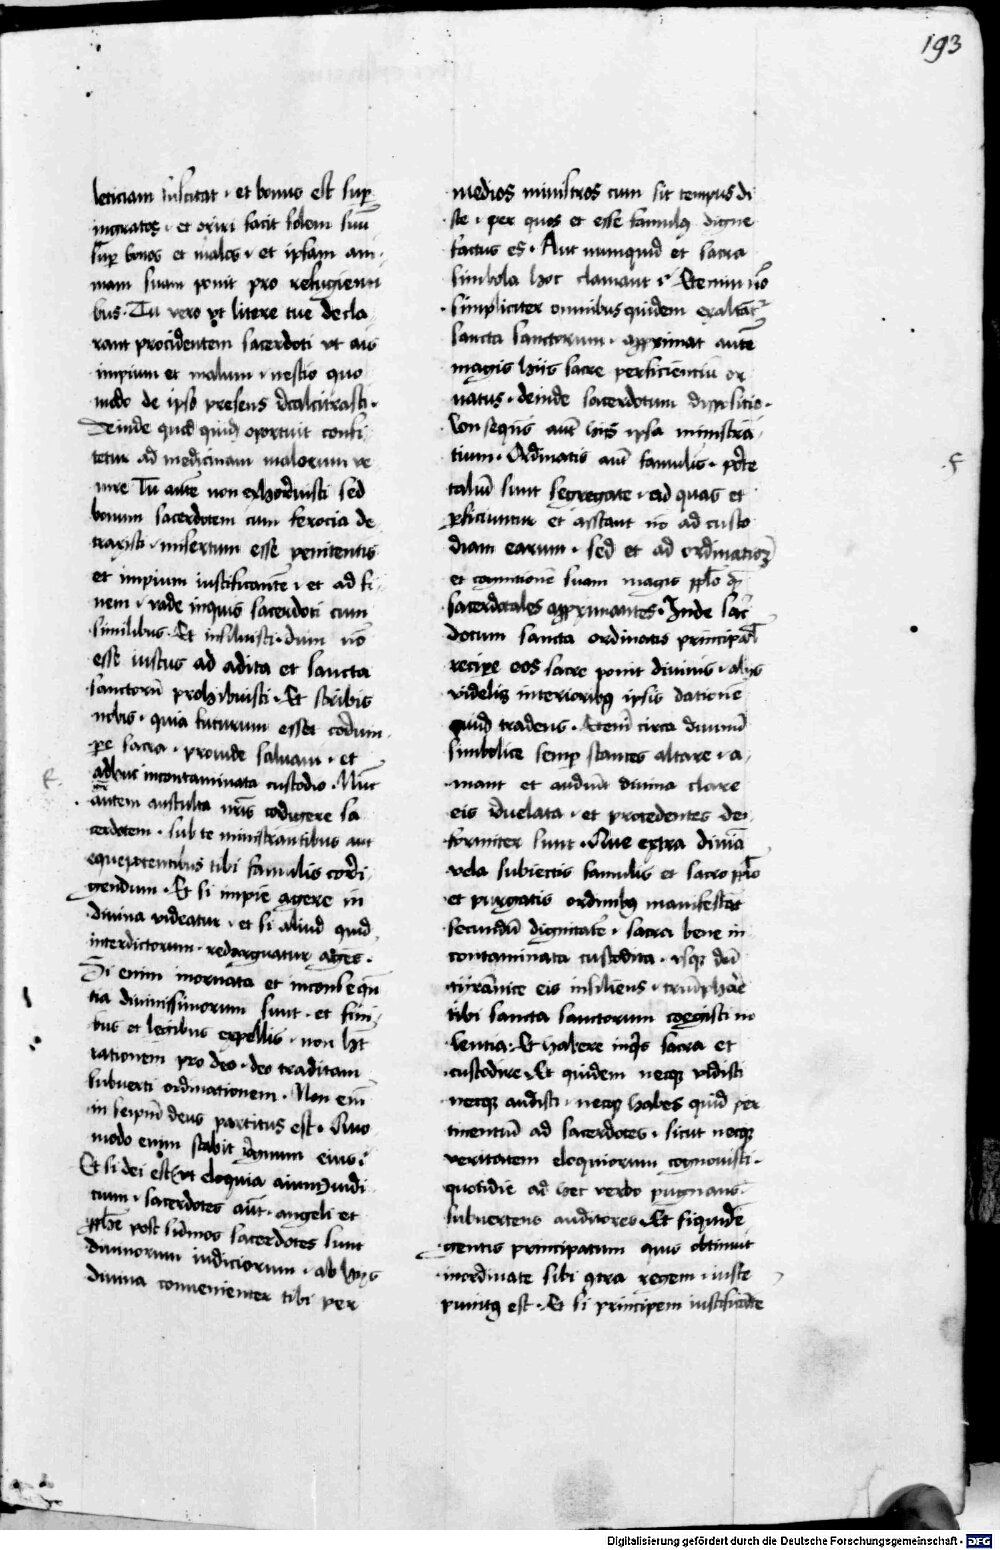 193
leticiam suscitat · et bonus est sup̄
ingratos · et oriri facit solem suū
sup̄ bonos et malos · et ipsam ani-
mam suam ponit pro refugienti
bus · Tu vero vt litere tue decla
rant procidentem sacerdoti vt ais
impium et malum · nescio quo
modo de ipso presens dcalcitrasti ·
Deinde qued quidē oportuit confi
tetur ad medicinam malorum ve
nire Tu autē non exhorruisti sed
bonum sacerdotem cum ferocia de
traxisti · misertum esse penitentis
et impium iustificantē · et ad fi-
nem · vade inquis sacerdoti cum
similibus · Et insiluisti · dum nō
esse iustus ad adita et sancta
sanctorū prohibuisti · Et scribis
nobis · quia futurum esset codrum-
pe sacra · prouide saluam · et
adhuc incontaminata custodio · Nūc
autem ausculta nr̄is codigere sa
cerdotem · sub te ministrantibus aut
equepotentibus tibi famulis cor̄i
gendum · Et si impie agere in
diuina videatur · et si aliud quid
interdictorum · redarguatur agēs ·
Si enim inornata et inconsequē
tia diuinissimorum sunt · et fini-
bus et legibus expellis · non ht̄
rationem pro deo · deo traditam
subuerti ordinationem · Non enī
in seipm̄ deus partitus est · Quo
modo enim stabit regnum eius ·
Et si dei est vt eloquia aiunt iudi
cium · sacerdotes aūt · angeli et
pph̄e post sūmos sacerdotes sunt
diuinorum iudiciorum · ab hijs
diuina conuenienter tibi per
medios ministros cum sit tempus di
sce · per quos et esse famulꝯ digne
factus es · Aut numquid et sacra
simbola hoc clamant · Etenim nō
simpliciter omnibus quidem exaltāt
sancta sanctorum · apprimat autē
magis hijs sacre perficientiū or
natus · deinde sacerdotum dispositio ·
Consequēs aūt hijs ipsa ministrā-
tium · Ordinatis aūt famulis · porte
talium sunt segregate · ad quas et
perficiuntur et asstant nō ad custo
diam earum · sed et ad ordinationē
et cognitionē suam magis ppl̄o q̄
sacerdotales apprimantes · Inde sac̄
dotum sancta ordinatis principal̄
recipe eos sacre ponit diuinis · alijs
videlis interioribꝯ ipsis dationē
quid tradens · Etenī circa diuinū
simbolice semp̄ stantes altare · a-
mant et audiūt diuina clare
eis reuelata · et procedentes dei-
formiter sunt · Que extra diuia
vela subiectis famulis et sacro ppl̄o
et purgatis ordinibꝯ manifestāt
secundū dignitatē · sacra bene in
contaminata custodita · vsqꝫ dū
tyrannice eis insiliens · triumphare
tibi sancta sanctorum coegisti no
lentia : Et habere inq̄s sacra et
custodire · Et quidem necqꝫ vidisti
necqꝫ audisti · necqꝫ habes quid per
tinentiū ad sacerdotes · sicut necqꝫ
veritatem eloquiorum cognouisti ·
quotidie ad hec verbo pugnans ·
subuertens auditores · Et siquidē
gentis principatum quis obtinuit
inordinate sibi ꝯtra regem · iuste
punitꝯ est · Et si principem iustificāte
Digitalisierung gefördert durch die Deutsche Forschungsgemeinschaft · DFG